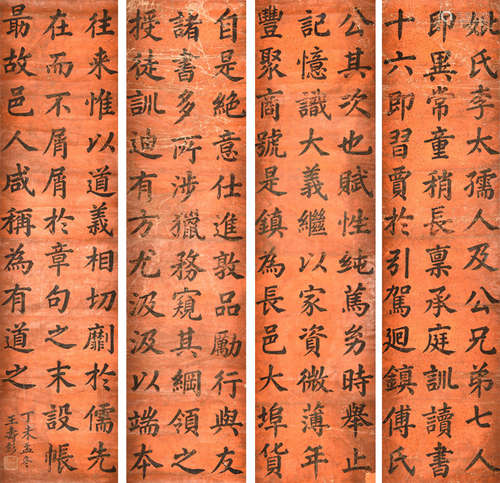 妣氏李太孺人及公兄弟七人
即異常童稍長禀承庭訓讀書
十六即習賈於引駕迴鎮傅氏
公其次也賦性純篤㓜時舉止
記憶識大義繼以家資微薄年
豐聚商號是鎮為長邑大埠貨
自是絕意仕進敦品勵行與友
諸書多所涉獵務窺其綱領之
授徒訓迪有方尤汲汲以端本
往来惟以道義相切劘於儒先
在而不屑屑於章句之末設帳
最故邑人咸稱為有道之
丁未孟冬